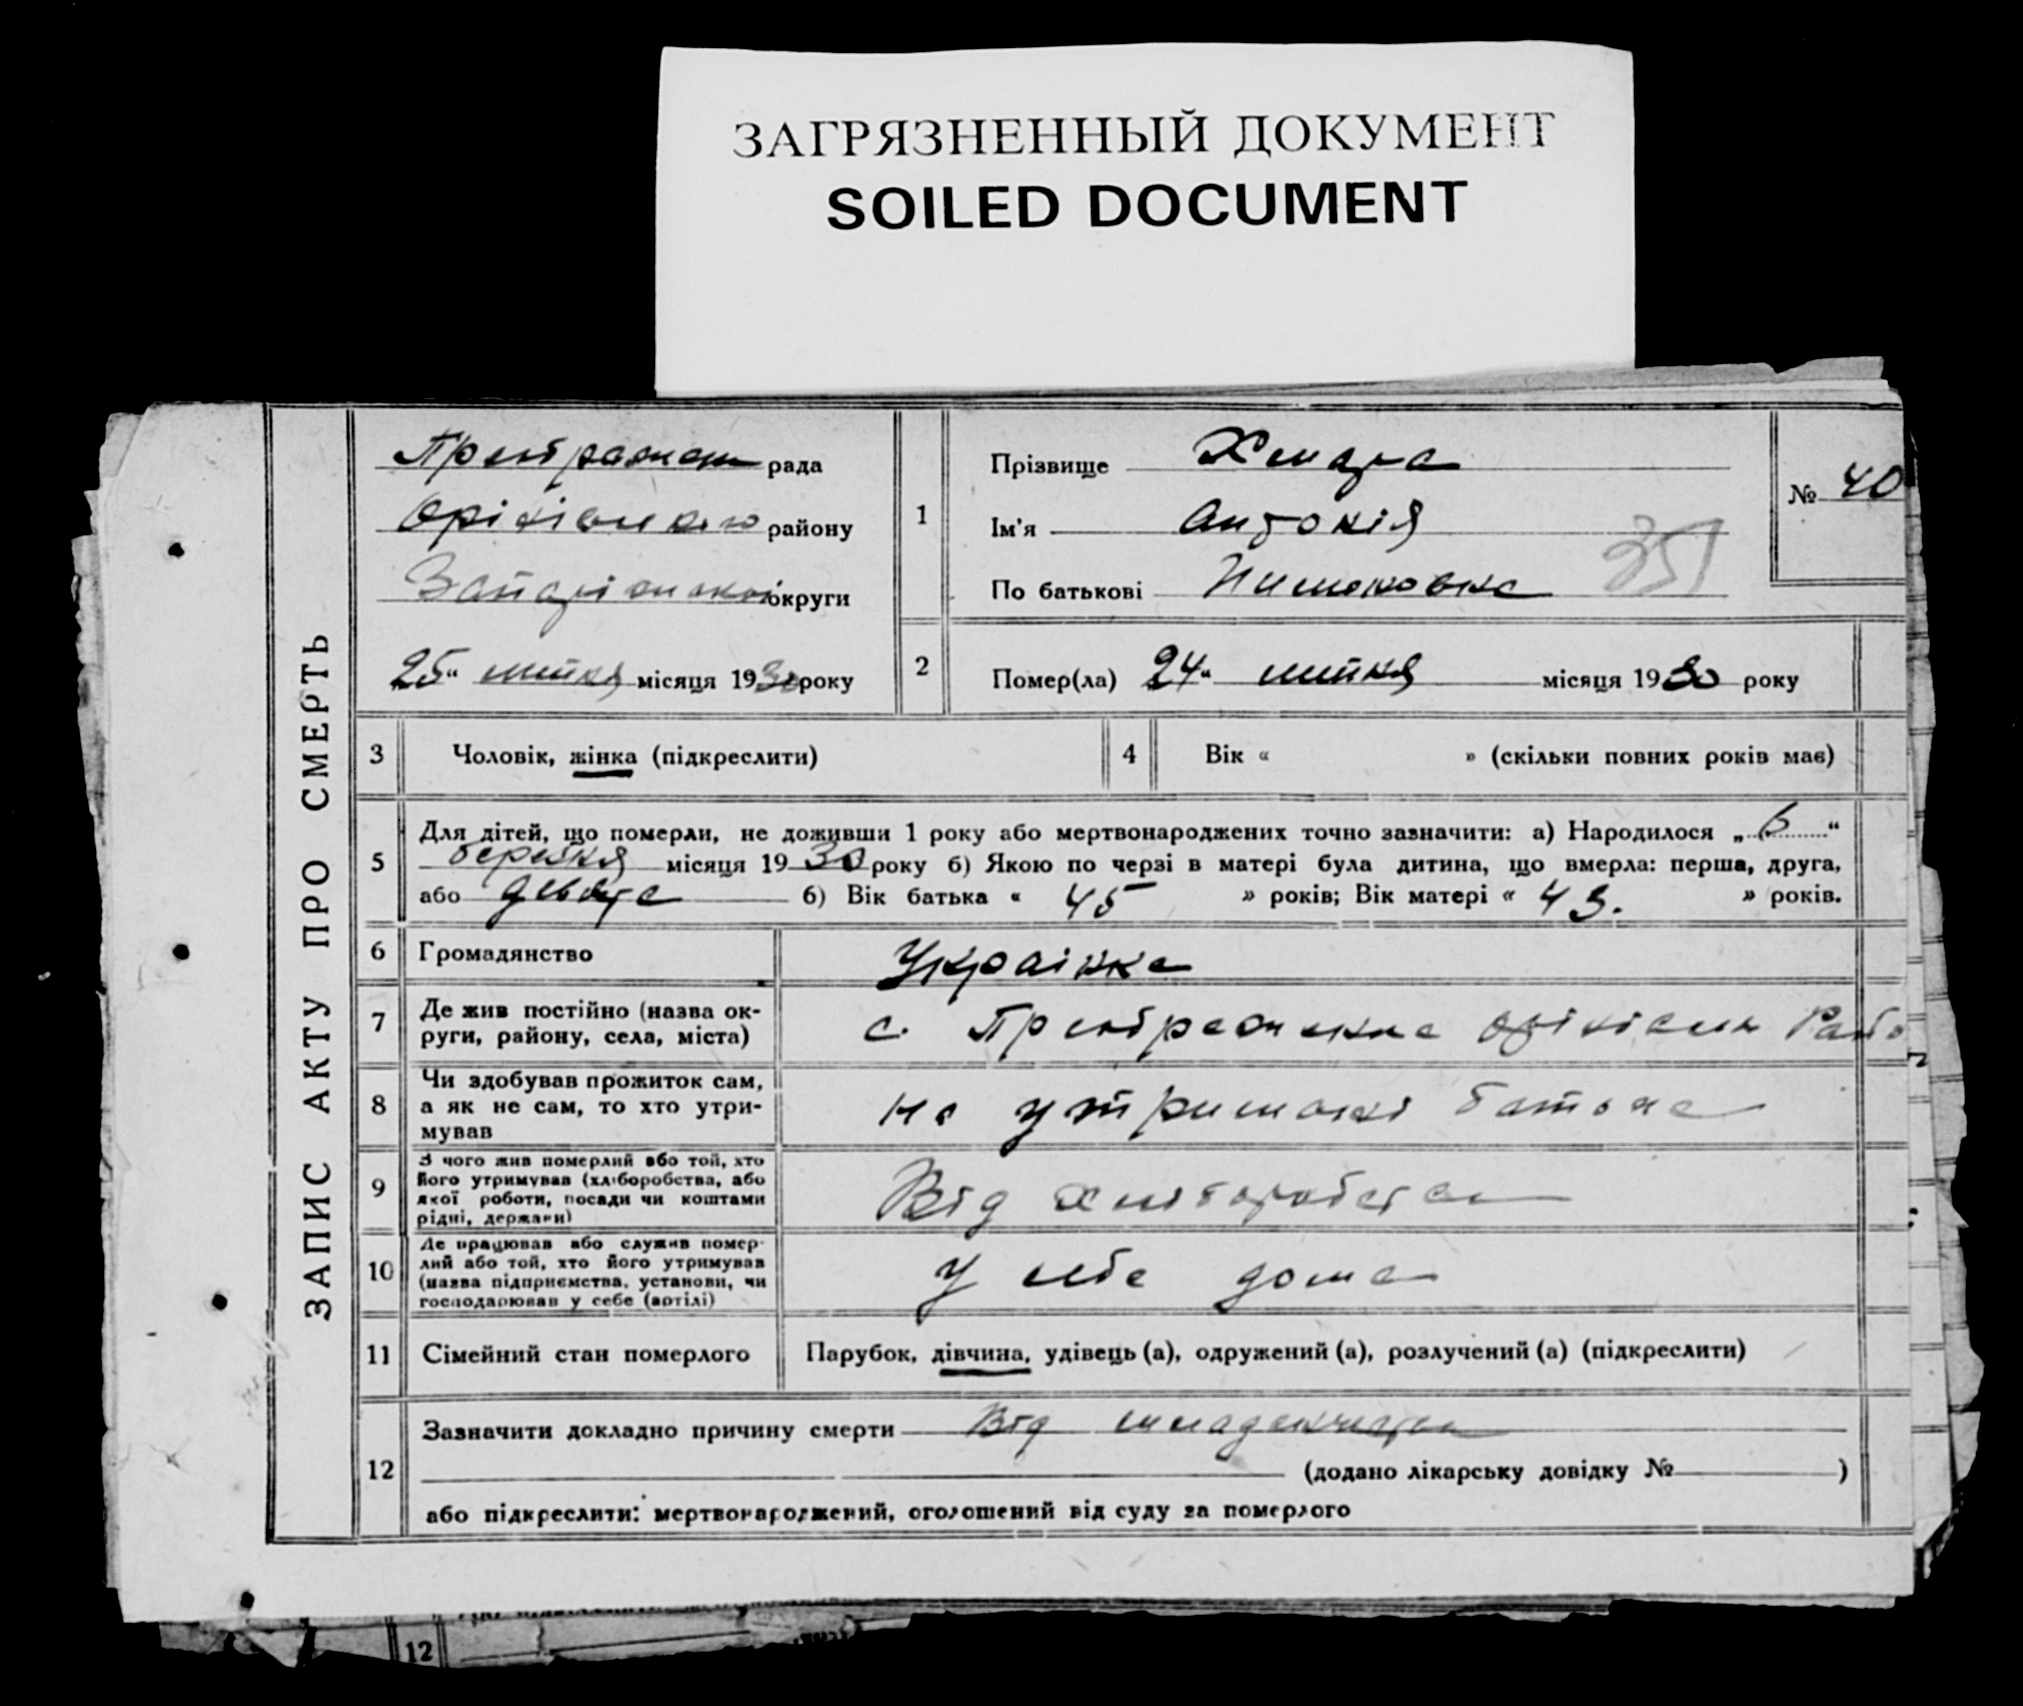 ЗАГРЯЗНЕННЫЙ ДОКУМЕНТ
SOILED DOCUMENT
ЗАПИС АКТУ ПРО СМЕРТЬ
рада
району
округи
25" липня місяця 1930 року
1
Прізвище Хмара
Ім'я Антонія
По батькові
351
№ 40
2
Помер(ла) 24" липня місяця 1930 року
3 Чоловік, жінка (підкреслити)
4 Вік « » (скільки повних років має)
5 Для дітей, що померли, не доживши 1 року або мертвонароджених точно зазначити: а) Народилося „ 6 “
березня місяця 1930 року б) Якою по черзі в матері була дитина, що вмерла: перша, друга,
або девята б) Вік батька « 45 » років; Вік матері « 43. » років.
6 Громадянство Українка
7 Де жив постійно (назва ок-
руги, району, села, міста) с. Преображенка Оріхівськ
8 Чи здобував прожиток сам,
а як не сам, то хто утри-
мував на утриманні батька
9 З чого жив померлий або той, хто
його утримував (хліборобства, або
якої роботи, посади чи коштами
рідні, держави) Від хліборобства
10 Де працював або служив помер-
лий або той, хто його утримував
(назва підприємства, установи, чи
господарював у себе (артілі) У себе дома
11 Сімейний стан померлого Парубок, дівчина, удівець (а), одружений (а), розлучений (а) (підкреслити)
12 Зазначити докладно причину смерти Від
(додано лікарську довідку № )
або підкреслити: мертвонароджений, оголошений від суду за померлого
12